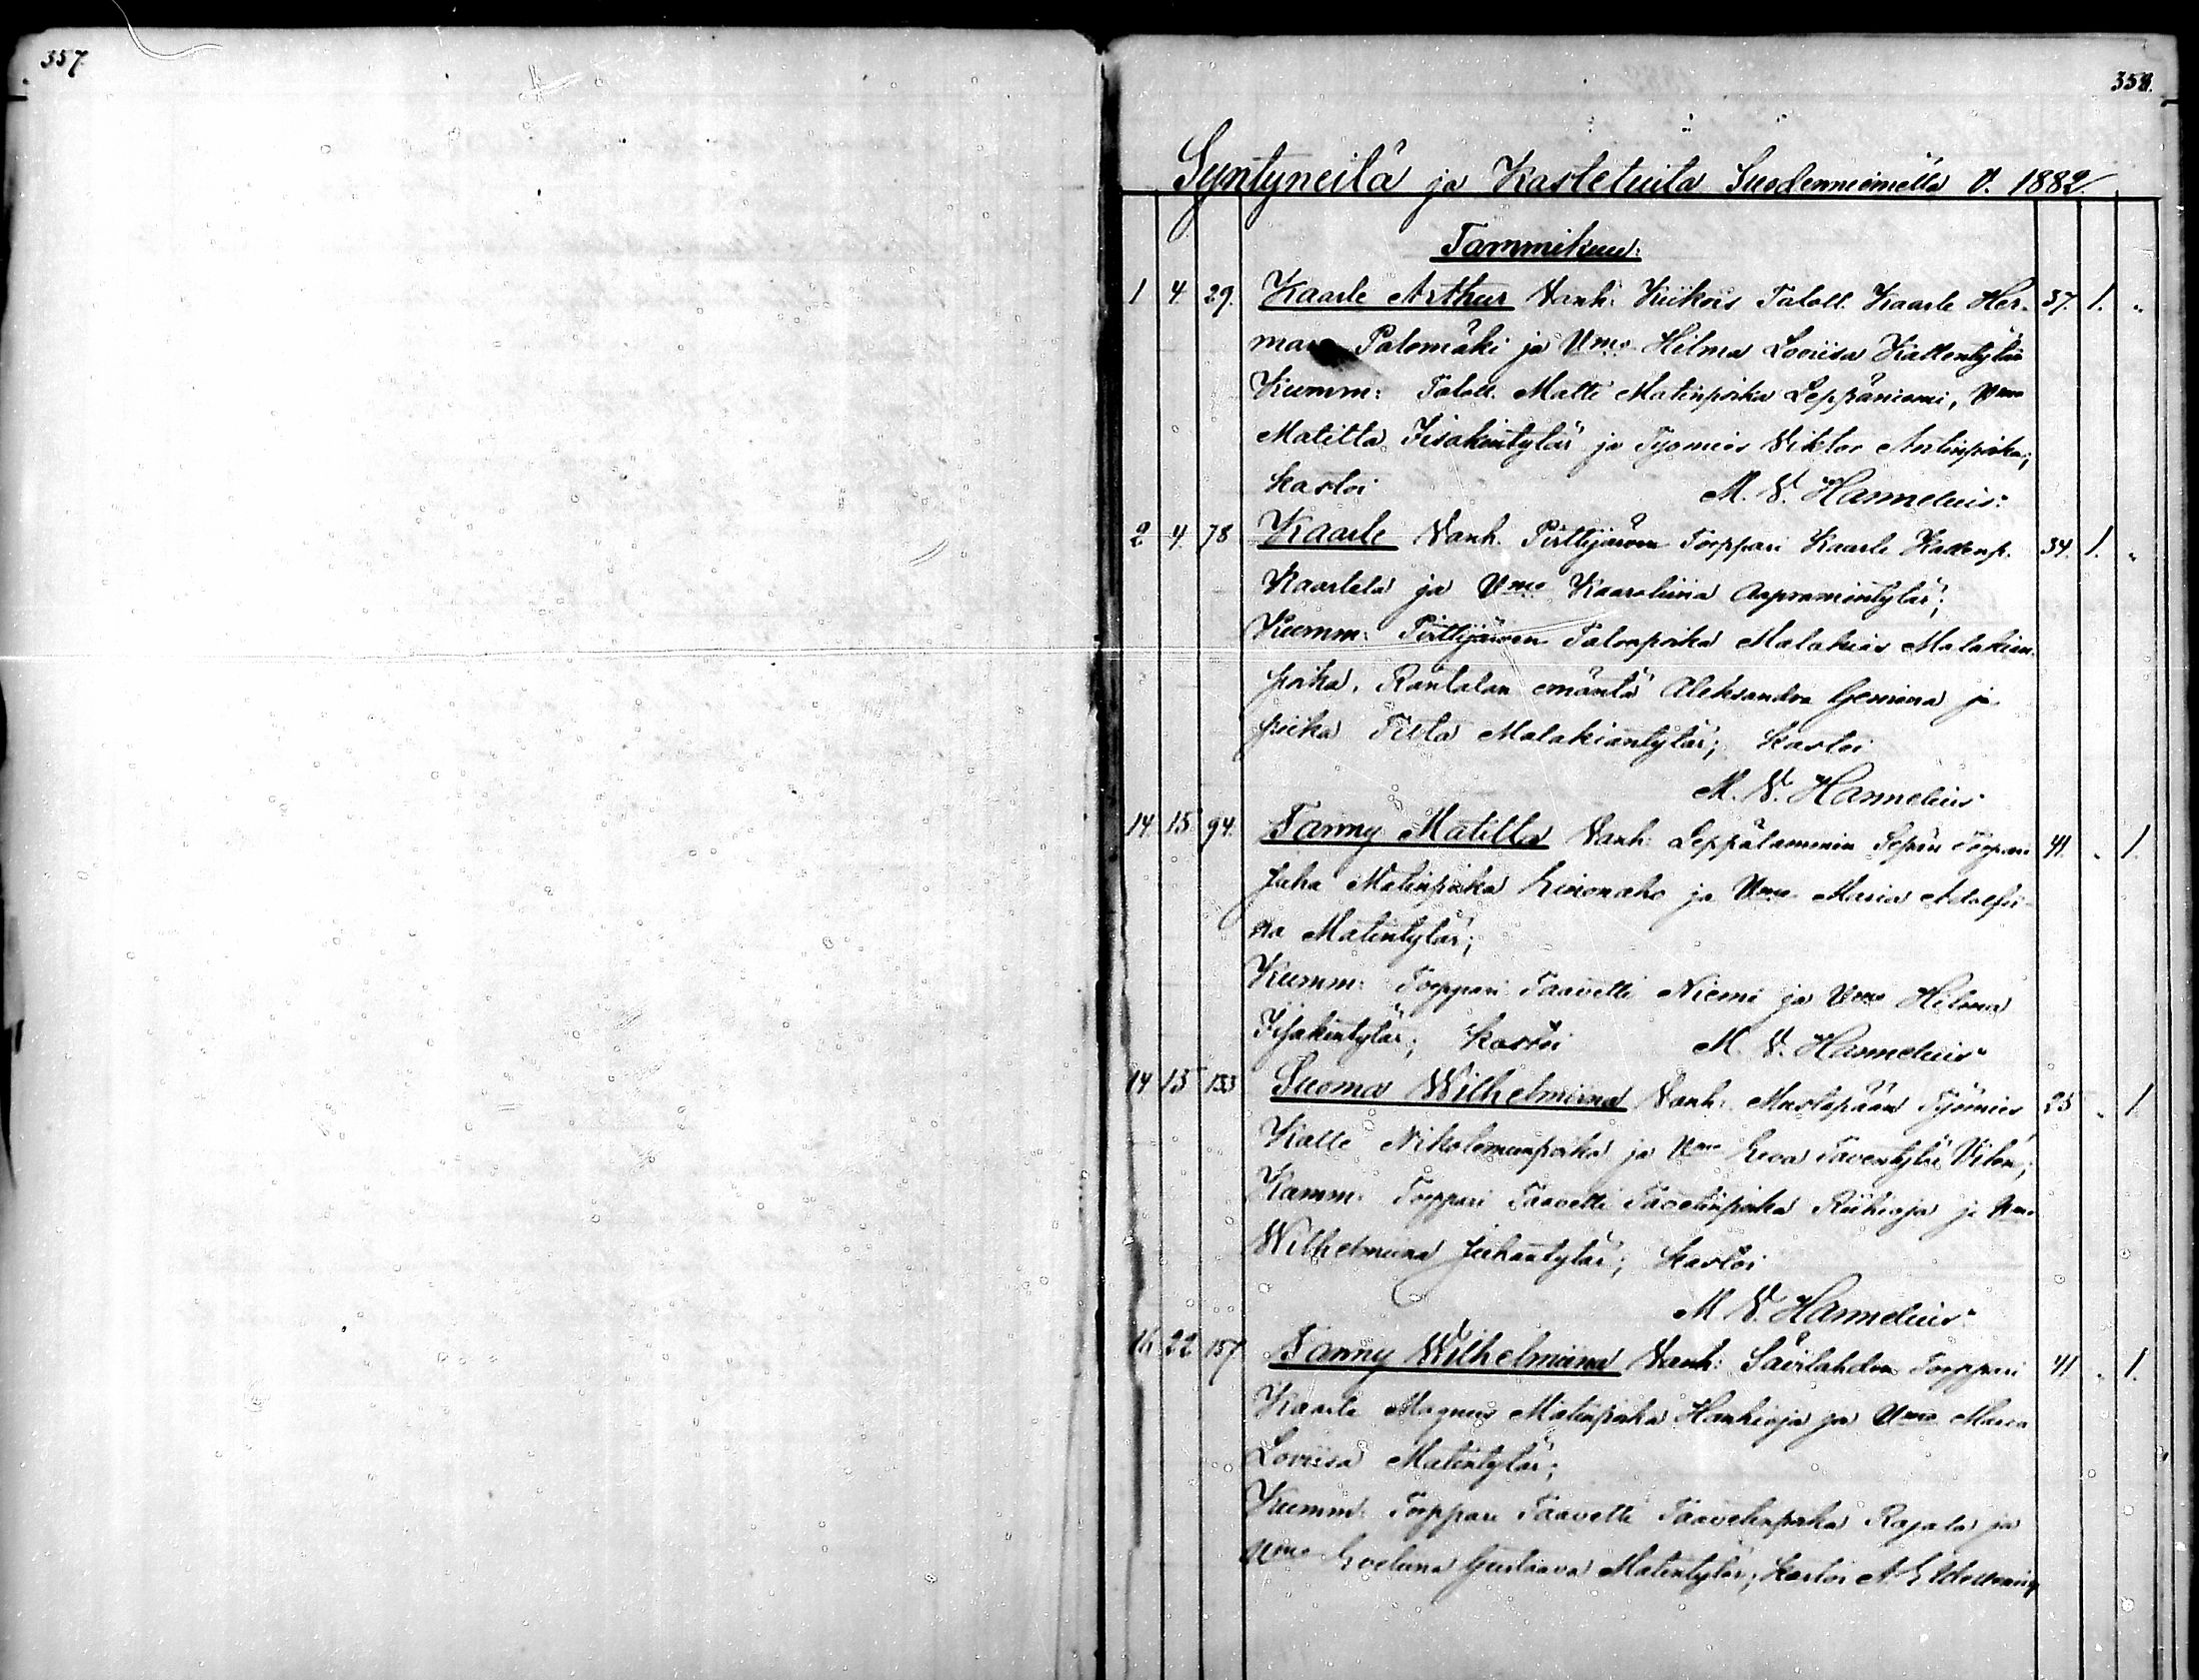 357.
358.
Syntyneitä ja Kastetuita Suodenniemellä V. 1882.
Tammikuu:
1 4 29. Kaarle Arthur Vanh: Kiikois Taloll. Kaarle Her- 37. 1. "
man Palomäki ja Vmo Hilma Loviisa Kallentytär
Kumm: Taloll. Matti Matinpoika Leppäniemi, Vmo
Matilta Iisakintytär ja Työmies Viktor Antinpoika;
kastoi M. V. Hannelius.
2 4 78 Kaarle Vanh. Pirttijärven Torppari Kaarle Kaarlenp. 34. 1. "
Kaarlela ja Vmo Kaaroliina Aapramintytär;
Kumm: Pirttijärven Talonpoika Malakias Malakian-
poika, Rantalan emäntä Aleksandra Gemina ja
piika Malakiantytär; kastoi
M. V. Hannelius
14 15 94. Fanny Matilta Vanh: Leppälammin Torppari 41. " 1.
Juha Matinpoika ja Vmo Maria Adolfii-
na Matintytär;
Kumm: Torppari Taavetti Niemi ja Vmo Hilma
Iisakintytär; kastoi M. V. Hannelius
14 15 133 Suoma Wilhelmiina Vanh: Mustapään Työmies 25 " 1
Kalle Nikolemuspoika ja Vmo Eeva Taventytär Vilen;
Kumm: Torppari Taavetti Tavetinpoika Riihioja ja Vmo
Wilhelmiina Juhantytär; kastoi
M. V. Hannelius
16 22 157 Fanny Wilhelmiina Vanh: Savilahden Torppari 41 " 1.
Kaarle Magnus Matinpoika Hankioja ja Vmo Maria
Loviisa Matintytär;
Kumm: Torppari Taavetti Taavetinpoika Rajala ja
Vmo Eveliina Gustaava Matintytär; kastoi A. E.